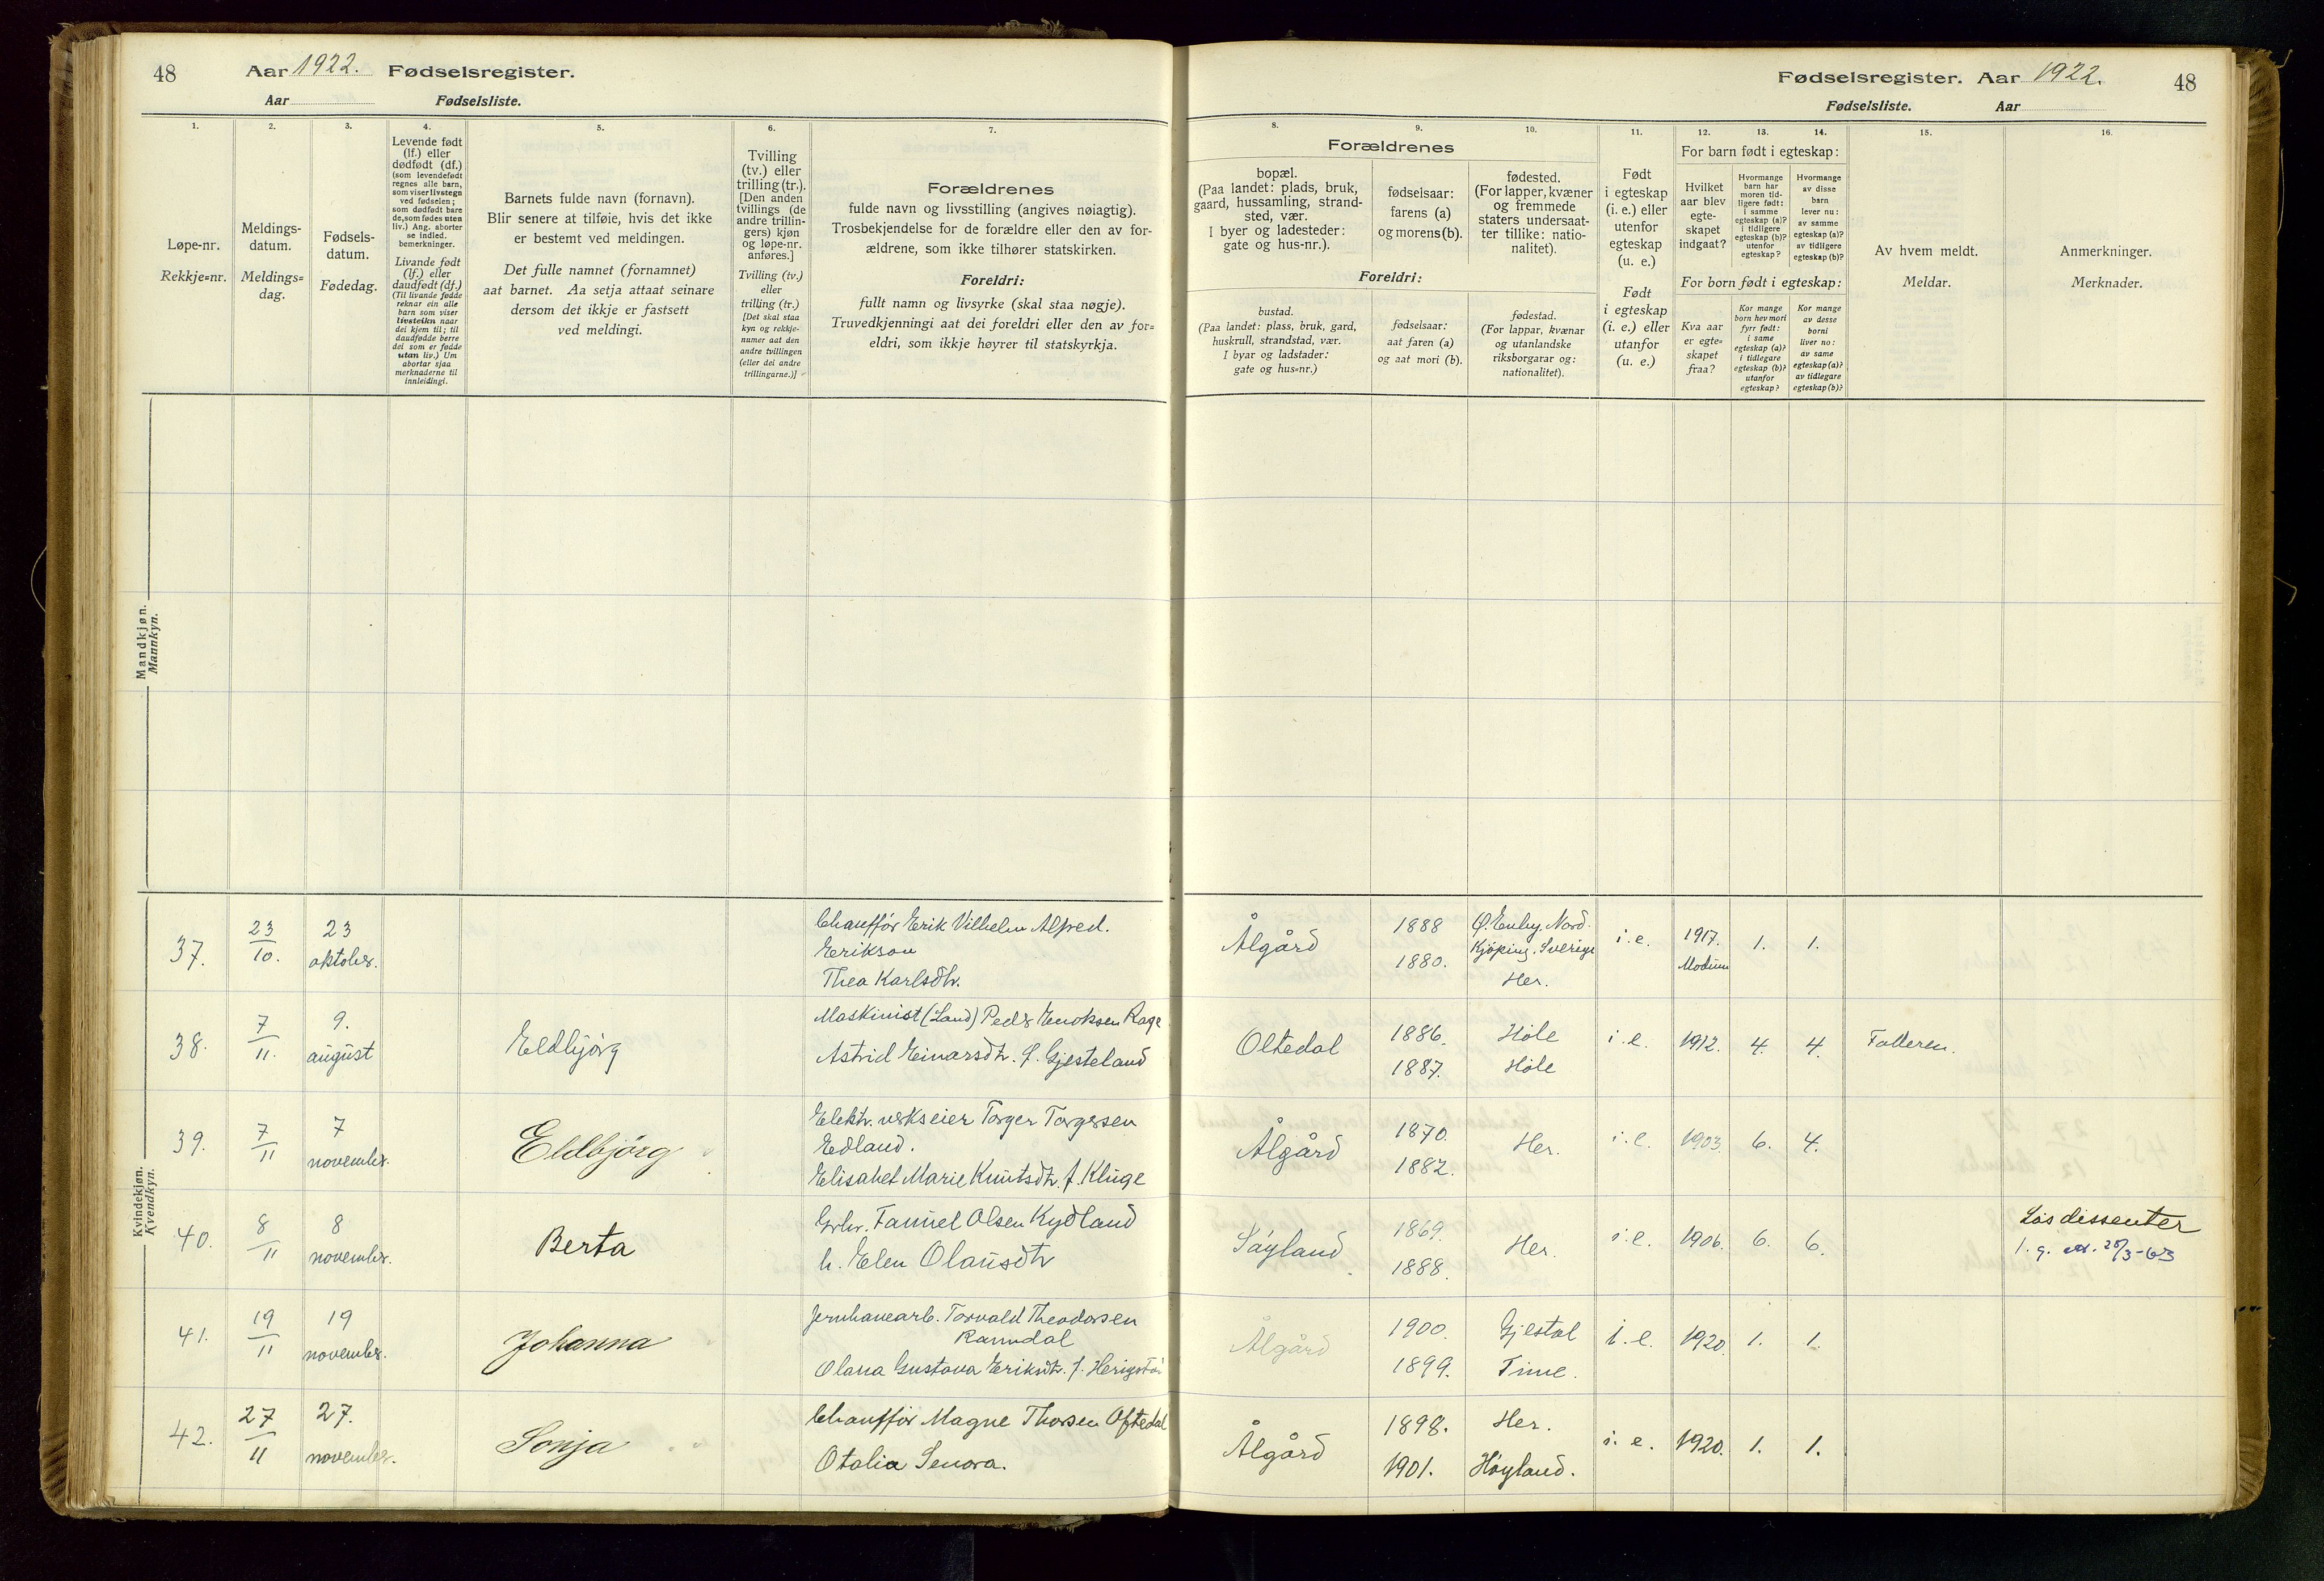 48 Aar 1922. Fødselsregister.
Aar Fødselsliste.
Fødselsregister. Aar 1922. 48
Fødselsliste. Aar
1.
Løpe-nr.
Rekkje=nr.
2.
Meldings-
datum.
Meldings=
dag.
3.
Fødsels-
datum.
Fødedag.
4.
Levende født
(lf.) eller
dødfødt (df.)
(som levendefødt
regnes alle barn,
som viser livstegn
ved fødselen;
som dødfødt bare
de, som fødes uten
liv.) Ang. aborter
se indled.
bemerkninger.
Livande født
(lf.) eller
daudfødt (df.)
(Til livande fødde
reknar ein alle
barn som viser
livsteikn naar
dei kjem til; til
daudfødde berre
dei som er fødde
utan liv.) Um
abortar sjaa
merknaderne til
innleidingi.
5.
Barnets fulde navn (fornavn).
Blir senere at tilføie, hvis det ikke
er bestemt ved meldingen.
Det fulle namnet (fornamnet)
aat barnet. Aa setja attaat seinare
dersom det ikkje er fastsett
ved meldingi.
6.
Tvilling
(tv.) eller
trilling (tr.).
[Den anden
tvillings (de
andre trillin-
gers) kjøn
og løpe-nr.
anføres.]
Tvilling (tv.)
eller
trilling (tr.)
[Det skal staa
kyn og rekkje-
numer aat den
andre tvillingen
(eller dei andre
trillingarne.)]
7.
Forældrenes
fulde navn og livsstilling (angives nøiagtig).
Trosbekjendelse for de forældre eller den av for-
ældrene, som ikke tilhører statskirken.
Foreldri:
fullt namn og livsyrke (skal staa nøgje).
Truvedkjenningi aat dei foreldri eller den av for=
eldri, som ikkje høyrer til statskyrkja.
Forældrenes
8.
bopæl.
(Paa landet: plads, bruk,
gaard, hussamling, strand-
sted, vær.
I byer og ladesteder:
gate og hus-nr.).
9.
fødselsaar:
farens (a)
og morens (b).
10.
fødested.
(For lapper, kvæner
og fremmede
staters undersaat-
ter tillike: natio-
nalitet).
Foreldri:
bustad.
(Paa landet: plass, bruk, gard,
huskrull, strandstad, vær.
I byar og ladstader:
gate og hus=nr.)
fødselsaar:
aat faren (a)
og aat mori (b).
fødestad.
(For lappar, kvænar
og utanlandske
riksborgarar og:
nationalitet).
11.
Født
i egteskap
(i. e.) eller
utenfor
egteskap
(u. e.)
Født
i egteskap
(i. e.) eller
utanfor
(u. e.)
12. 13. 14.
For barn født i egteskap:
Hvilket
aar blev
egte-
skapet
indgaat?
Hvormange
barn har
moren tid-
ligere født:
i samme
egteskap (a)?
i tidligere
egteskap (b)?
utenfor
egteskap?
Hvormange
av disse
barn
lever nu:
av samme
egteskap (a)?
av tidligere
egteskap (b)?
For born født i egteskap:
Kva aar
er egte=
skapet
fraa?
Kor mange
born hev mori
fyrr født:
i same
egteskap (a)?
i tidlegare
egteskap (b)?
utanfor
egteskap?
Kor mange
av desse
borni
liver no:
av same
egteskap (a)?
av tidlegare
egteskap (b)?
15.
Av hvem meldt.
Meldar.
16.
Anmerkninger.
Merknader.
Mandkjøn.
Mannkyn.
Kvindekjøn.
Kvendkyn.
37. 23/10. 23 oktober.
Chauffór Erik Vilhelm Alfred.
Erikson
Thea Karlsdtr.
Ålgård 1888 1880.
Kjöping. Sverige
Her.
i. e. 1917. Modum 1. 1.
38. 7/11. 9. august Eldbjörg
Maskinist (Land) Peder Enoksen Rage
Astrid Einarsdtr. f. Gjesteland
Oltedal 1886. 1887. Höle Höle i. e. 1912. 4. 4. Faderen.
39. 7/11 7 november. Eldbjörg
Elektr. verkseier Torger Torgersen
Edland.
Elisabet Marie Knutsdtr. f. Kluge
Ålgård 1870. 1882. Her. i. e. 1903. 6. 4.
40. 8/11 8 november. Berta
Grbr. Tanüel Olsen Kydland
h. Elen Olaüsdtr
Söyland 1869. 1888. Her. i. e. 1906. 6. 6.
Løs dissenter
41. 19/11 19 november. Johanna
Jernbanearb. Torvald Theodorsen
Ramndal
Olana Gustava Eriksdtr. f. Herigstad
Ålgård 1900. 1899. Gjestal Time. i. e. 1920. 1. 1.
42. 27/11 27. november. Sonja
Chauffór Magne Thorsen Oftedal
Otalia Senora.
Ålgård 1898. 1901. Her. Höyland. i. e. 1920. 1. 1.